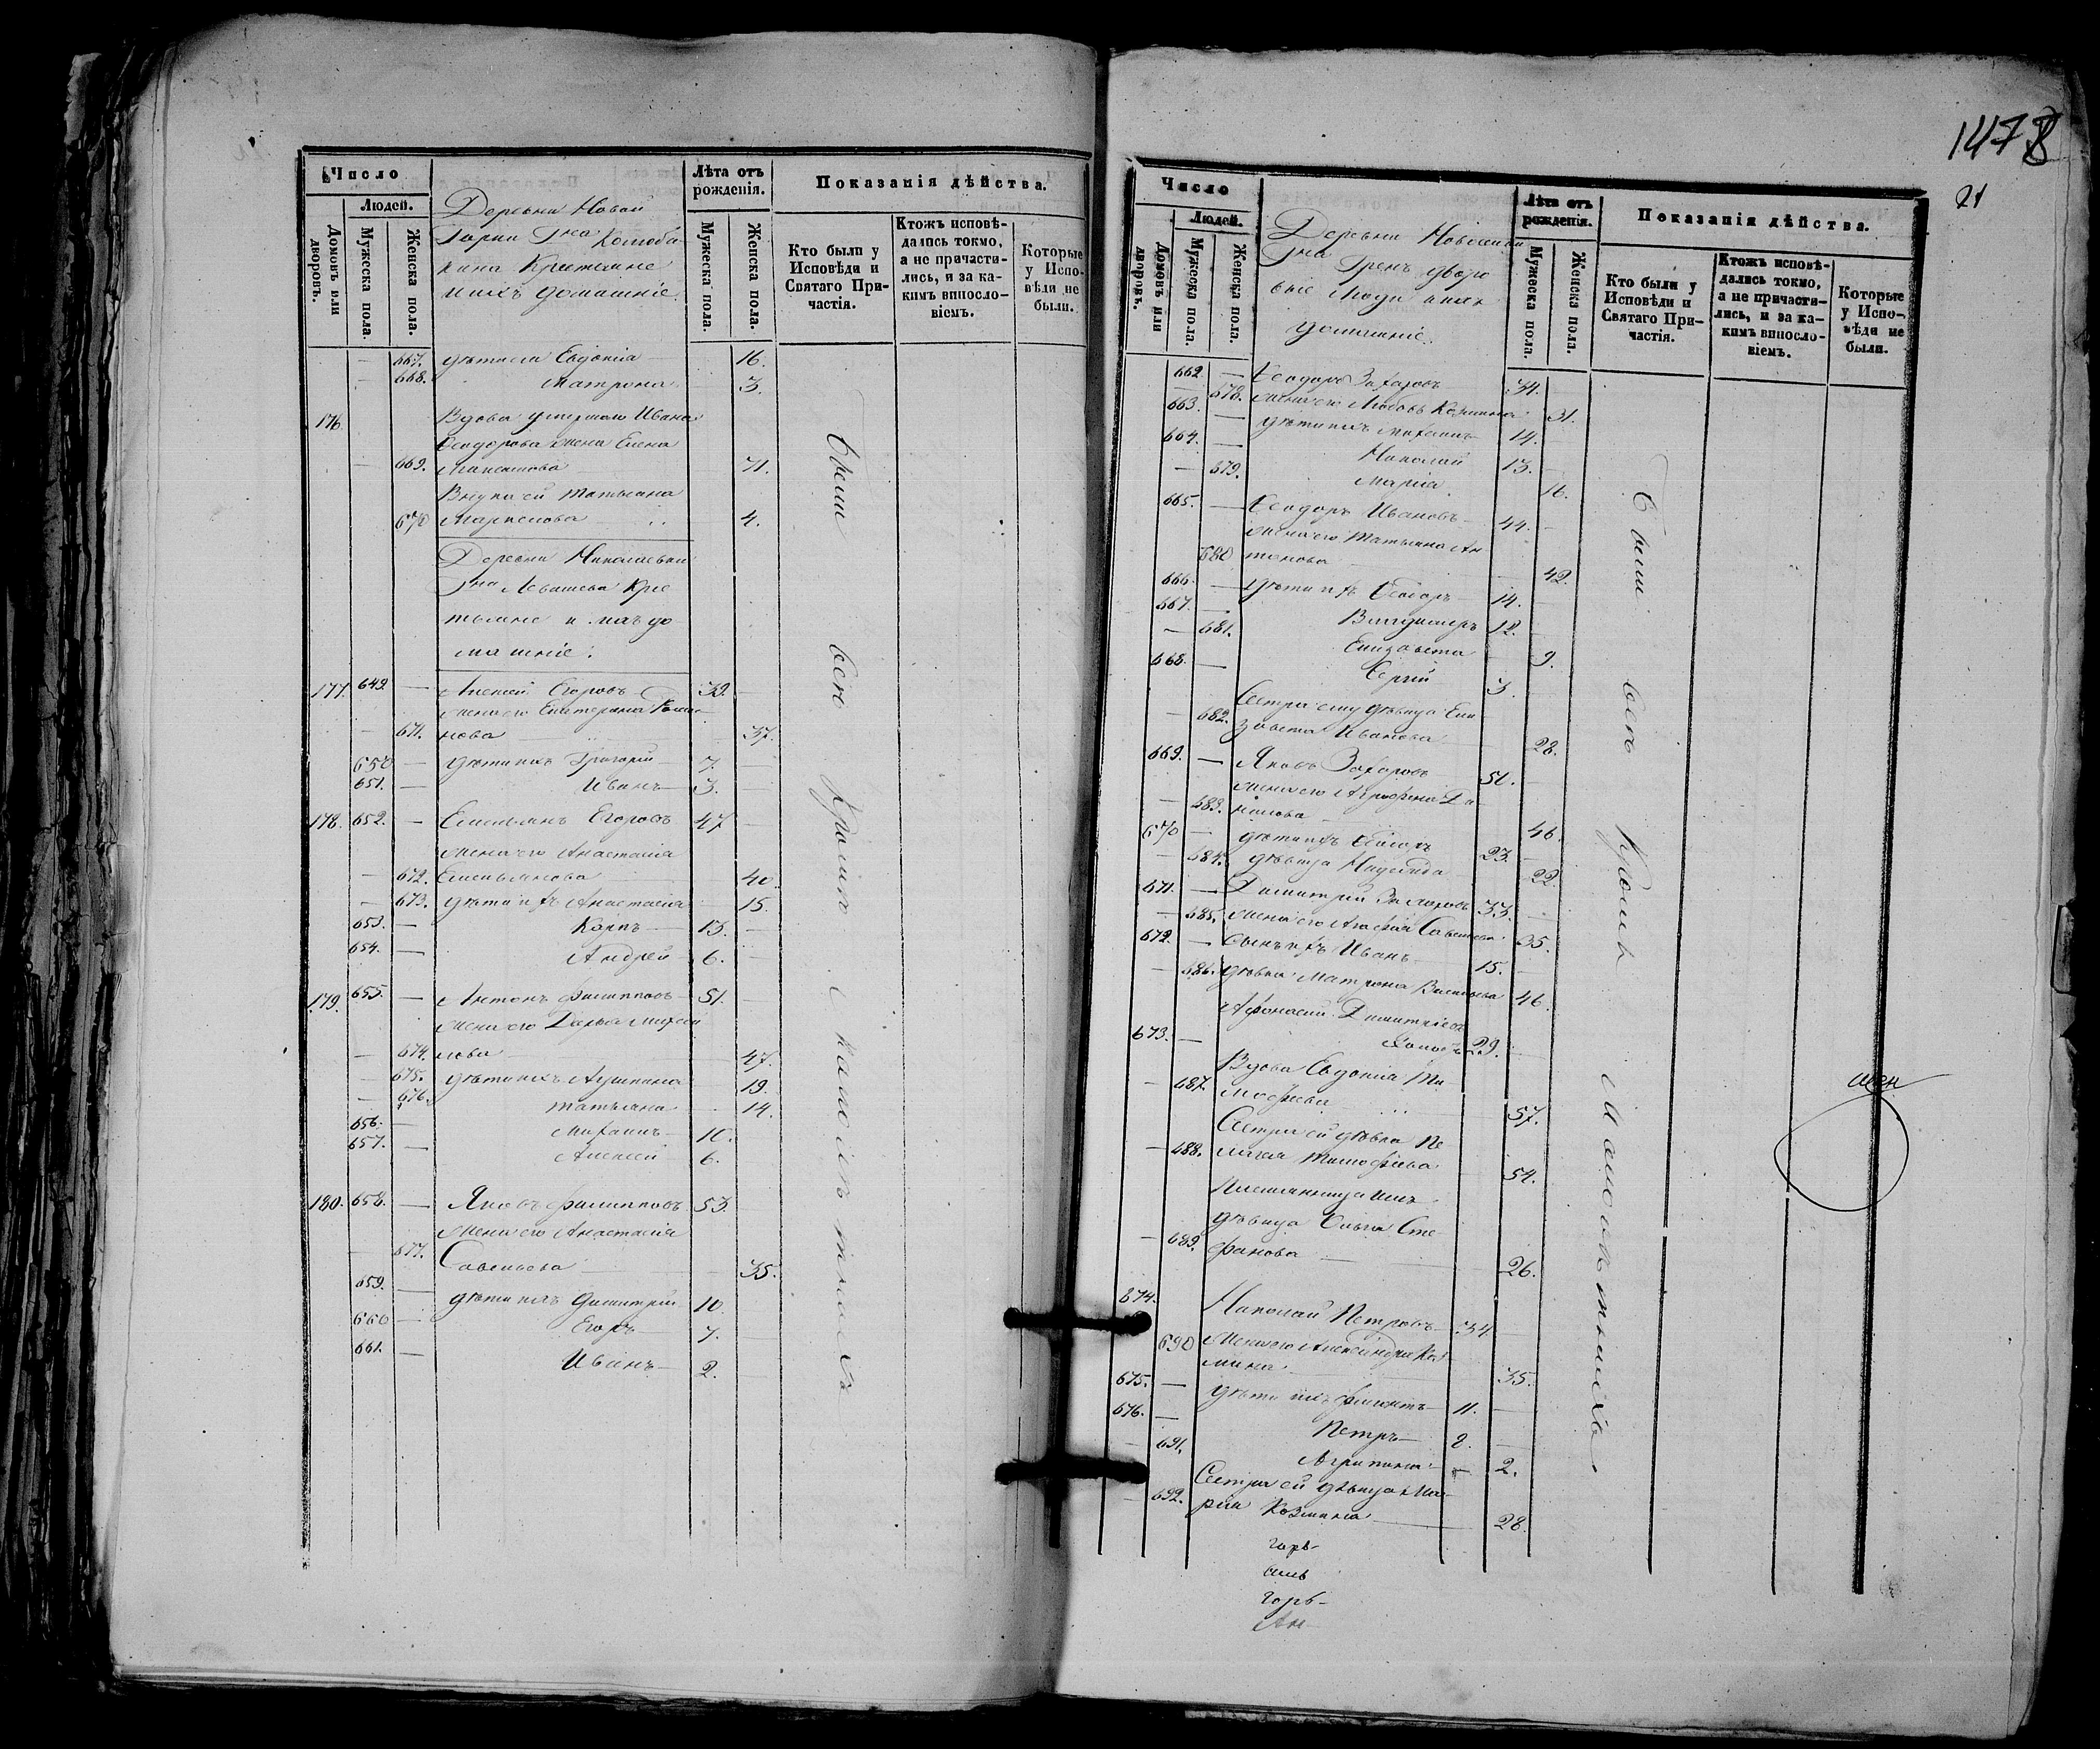 Число
Людей.
Домовъ или дворовъ.
Мужеска пола.
Женска пола.
Деревни Новой
Гна
Крестьяне
и ихъ домашніе.
Лѣта отъ рожденія.
Мужеска пола.
Женска пола.
Показанія дѣйства.
Кто были у Исповѣди и Святаго Причастія.
Ктожъ исповѣдались токмо, а не причастились, и за какимъ винословіемъ.
Которые у Исповѣди не были.
— 667. дѣти его Евдокія 16.
— 668. Матрона 3.
176 Вдова умершаго Ивана
Ѳеодорова жена Елена
— 669. 71.
Внука ей Татьяна
670 4.
Деревни Николаевки
Гна Левашева Крес
тьяне и ихъ до
машніе.
177. 649. — Алексей Егоровъ 39.
жена его Екатерина Рома
— 671. нова 37.
650 — дѣти ихъ Григорій 7.
651. — Иванъ 3.
178. 652. — Емельянъ Егоровъ 47
жена его Анастасія
— 672. Емельянова 40.
— 673. дѣти ихъ Анастасія 15.
653. — Карпъ 13.
654. — Андрей 6.
179. 655. — Антонъ Филипповъ 51.
жена его Дарья Михаи
— 674. лова 47.
— 675. дѣти ихъ Акулина 19.
— 676. Татьяна 14.
656. — Михаилъ 10.
657. — Алексей 6.
180. 658. — Яковъ Филипповъ 53.
жена его Анастасія
— 677. Савельева 35.
659. — дѣти ихъ Димитрій 10.
660 — Егоръ 7.
661. — Иванъ 2.
Были всѣ кромѣ малолѣтныхъ
1478
21
Число
Людей.
Домовъ или дворовъ.
Мужеска пола.
Женска пола.
Деревни
Гна дворо
вые люди и ихъ
домашніе.
Лѣта отъ рожденія.
Мужеска пола.
Женска пола.
Показанія дѣйства.
Кто были у Исповѣди и Святаго Причастія.
Ктожъ исповѣдались токмо, а не причастились, и за какимъ винословіемъ.
Которые у Исповѣди не были.
662. — Ѳеодоръ Захаровъ 34.
— 678. жена его Любовь Козьмина 31.
663. — дѣти ихъ Михаилъ 14.
664. — Николай 13.
— 679. Марія 16.
665. — Ѳеодоръ Ивановъ 44.
жена его Татьяна Ан
680 тонова 42.
666. — дѣти ихъ Ѳеодоръ 14.
667. — Владимиръ 12.
— 681. Елизавета 9.
668. — Сергій 3.
Сестра ему дѣвица Ели
— 682. завета Иванова 28.
669. — Яковъ Захаровъ 51.
жена его Агрофена Да
— 683. нилова 46.
670 — дѣти ихъ Ѳеодоръ 23.
— 684. дѣвица Надежда 22.
671. — Димитрій Захаровъ 33.
— 685. жена его Агафія Савельева 35.
672. — Сынъ ихъ Иванъ 15.
— 686. дѣвка Матрона Васильева 46.
Афонасій Димитріевъ
673. — 29.
Вдова Евдокія Ти
— 687. мофеева 57.
Сестра ей дѣвка Пе
— 688. лагея Тимофеева 54.
Племянница имъ
дѣвица Ольга Сте
— 689. фанова 26.
674. Николай Петровъ 34.
690 жена его Александра Коз
мина 35.
675. — дѣти ихъ Филиппъ 11.
676. — Петръ 8.
— 691. Агрипина 2.
Сестра ей дѣвица Ма
— 692. рія Козмина 28.
Были всѣ кромѣ малолѣтныхъ